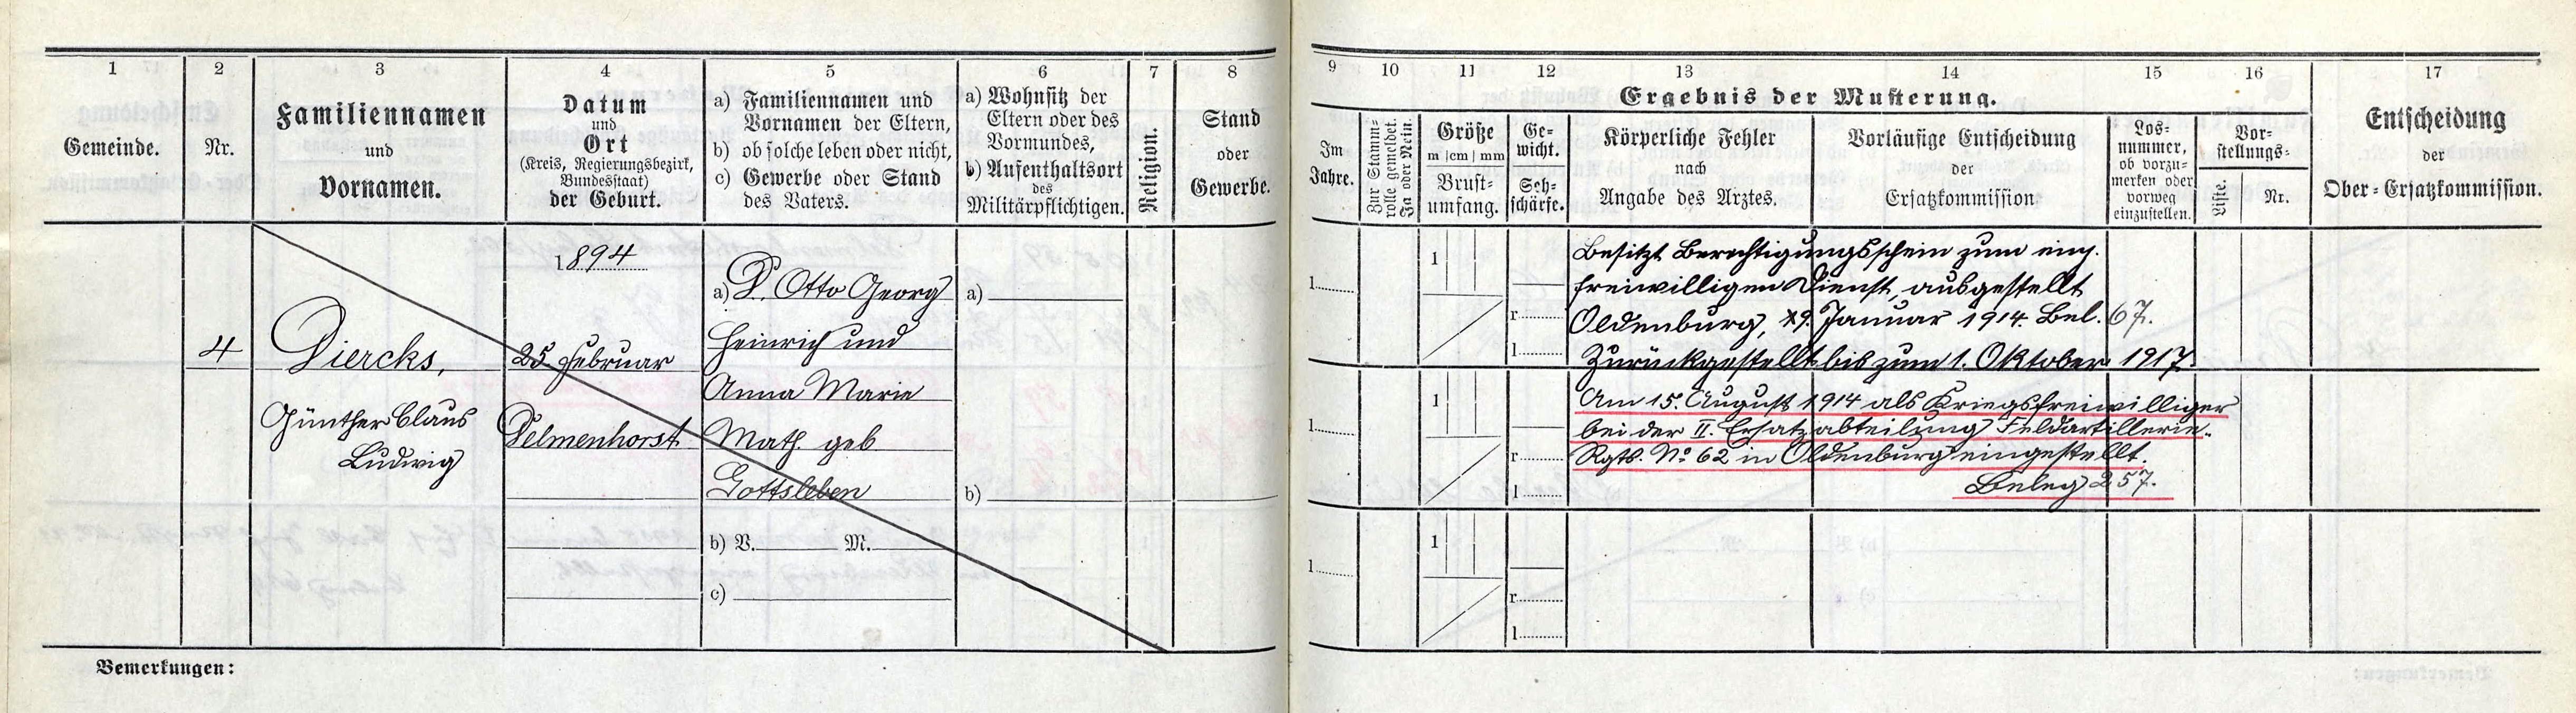 1
Gemeinde.
2
Nr.
3
Familiennamen
und
Vornamen.
4
Datum
und
Ort
(Kreis, Regierungsbezirk,
Bundesstaat)
der Geburt.
5
a) Familiennamen und
Vornamen der Eltern,
b) ob solche leben oder nicht,
c) Gewerbe oder Stand
des Vaters.
6
a) Wohnsitz der
Eltern oder des
Vormundes,
b) Aufenthaltsort
des
Militärpflichtigen.
7
Religion.
8
Stand
oder
Gewerbe.
4
Diercks,
Günther Claus
Ludwig
1894
25 Februar
Delmenhorst
a) D. Otto Georg
Heinrich und
Anna Marie
Math. geb
Gottsleben
b) V. M.
c)
a)
b)
Bemerkungen:
9
10
11
12
13
14
15
16
17
Ergebnis der Musterung.
Im
Jahre.
Zur Stamm-
rolle gemeldet.
Ja oder Nein.
Größe
m | cm | mm
Brust-
umfang.
Ge-
wicht.
Seh-
schärfe.
Körperliche Fehler
nach
Angabe des Arztes.
Vorläufige Entscheidung
der
Ersatzkommission
Los-
nummer,
ob vorzu-
merken oder
vorweg
einzustellen.
Vor-
stellungs-
Liste.
Nr.
Entscheidung
der
Ober-Ersatzkommission.
1
1
r
l
Besitzt Berechtigungsschein zum einj.
freiwilligen Dienst, ausgestellt
Oldenburg, 9. Januar 1914. Bel. 67.
Zurückgestellt bis zum 1. Oktober 1917.
1
1
r
l
Am 15. August 1914 als Kriegsfreiwilliger
bei der II. Ersatzabteilung Feldartillerie-
Rgts. No 62 in Oldenburg eingestellt.
Beleg 257.
1
1
r
l